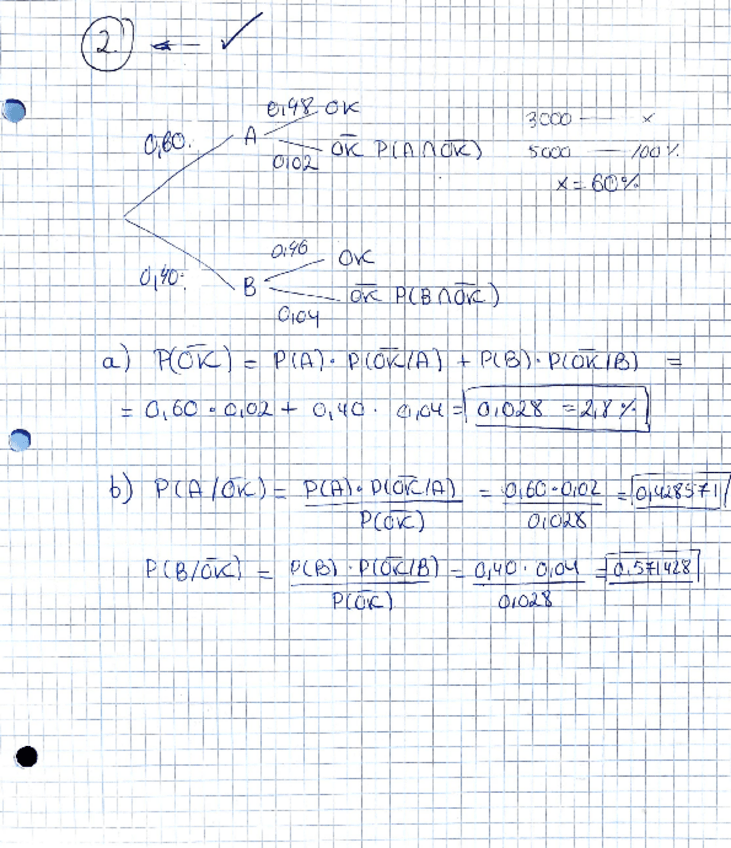 2. ← ✓
0,98 OK
0,60. A
0,02 O̅K̅ P(A∩O̅K̅)
3000 — x
5000 — 100%
x = 60%
0,96 OK
0,40. B
0,04 O̅K̅ P(B∩O̅K̅)
a) P(O̅K̅) = P(A)· P(O̅K̅/A) + P(B)· P(O̅K̅/B) =
= 0,60 · 0,02 + 0,40 · 0,04 = 0,028 = 2,8%
b) P(A/O̅K̅) = P(A)·P(O̅K̅/A) / P(O̅K̅) = 0,60·0,02 / 0,028 = 0,428571
P(B/O̅K̅) = P(B)·P(O̅K̅/B) / P(O̅K̅) = 0,40·0,04 / 0,028 = 0,571428